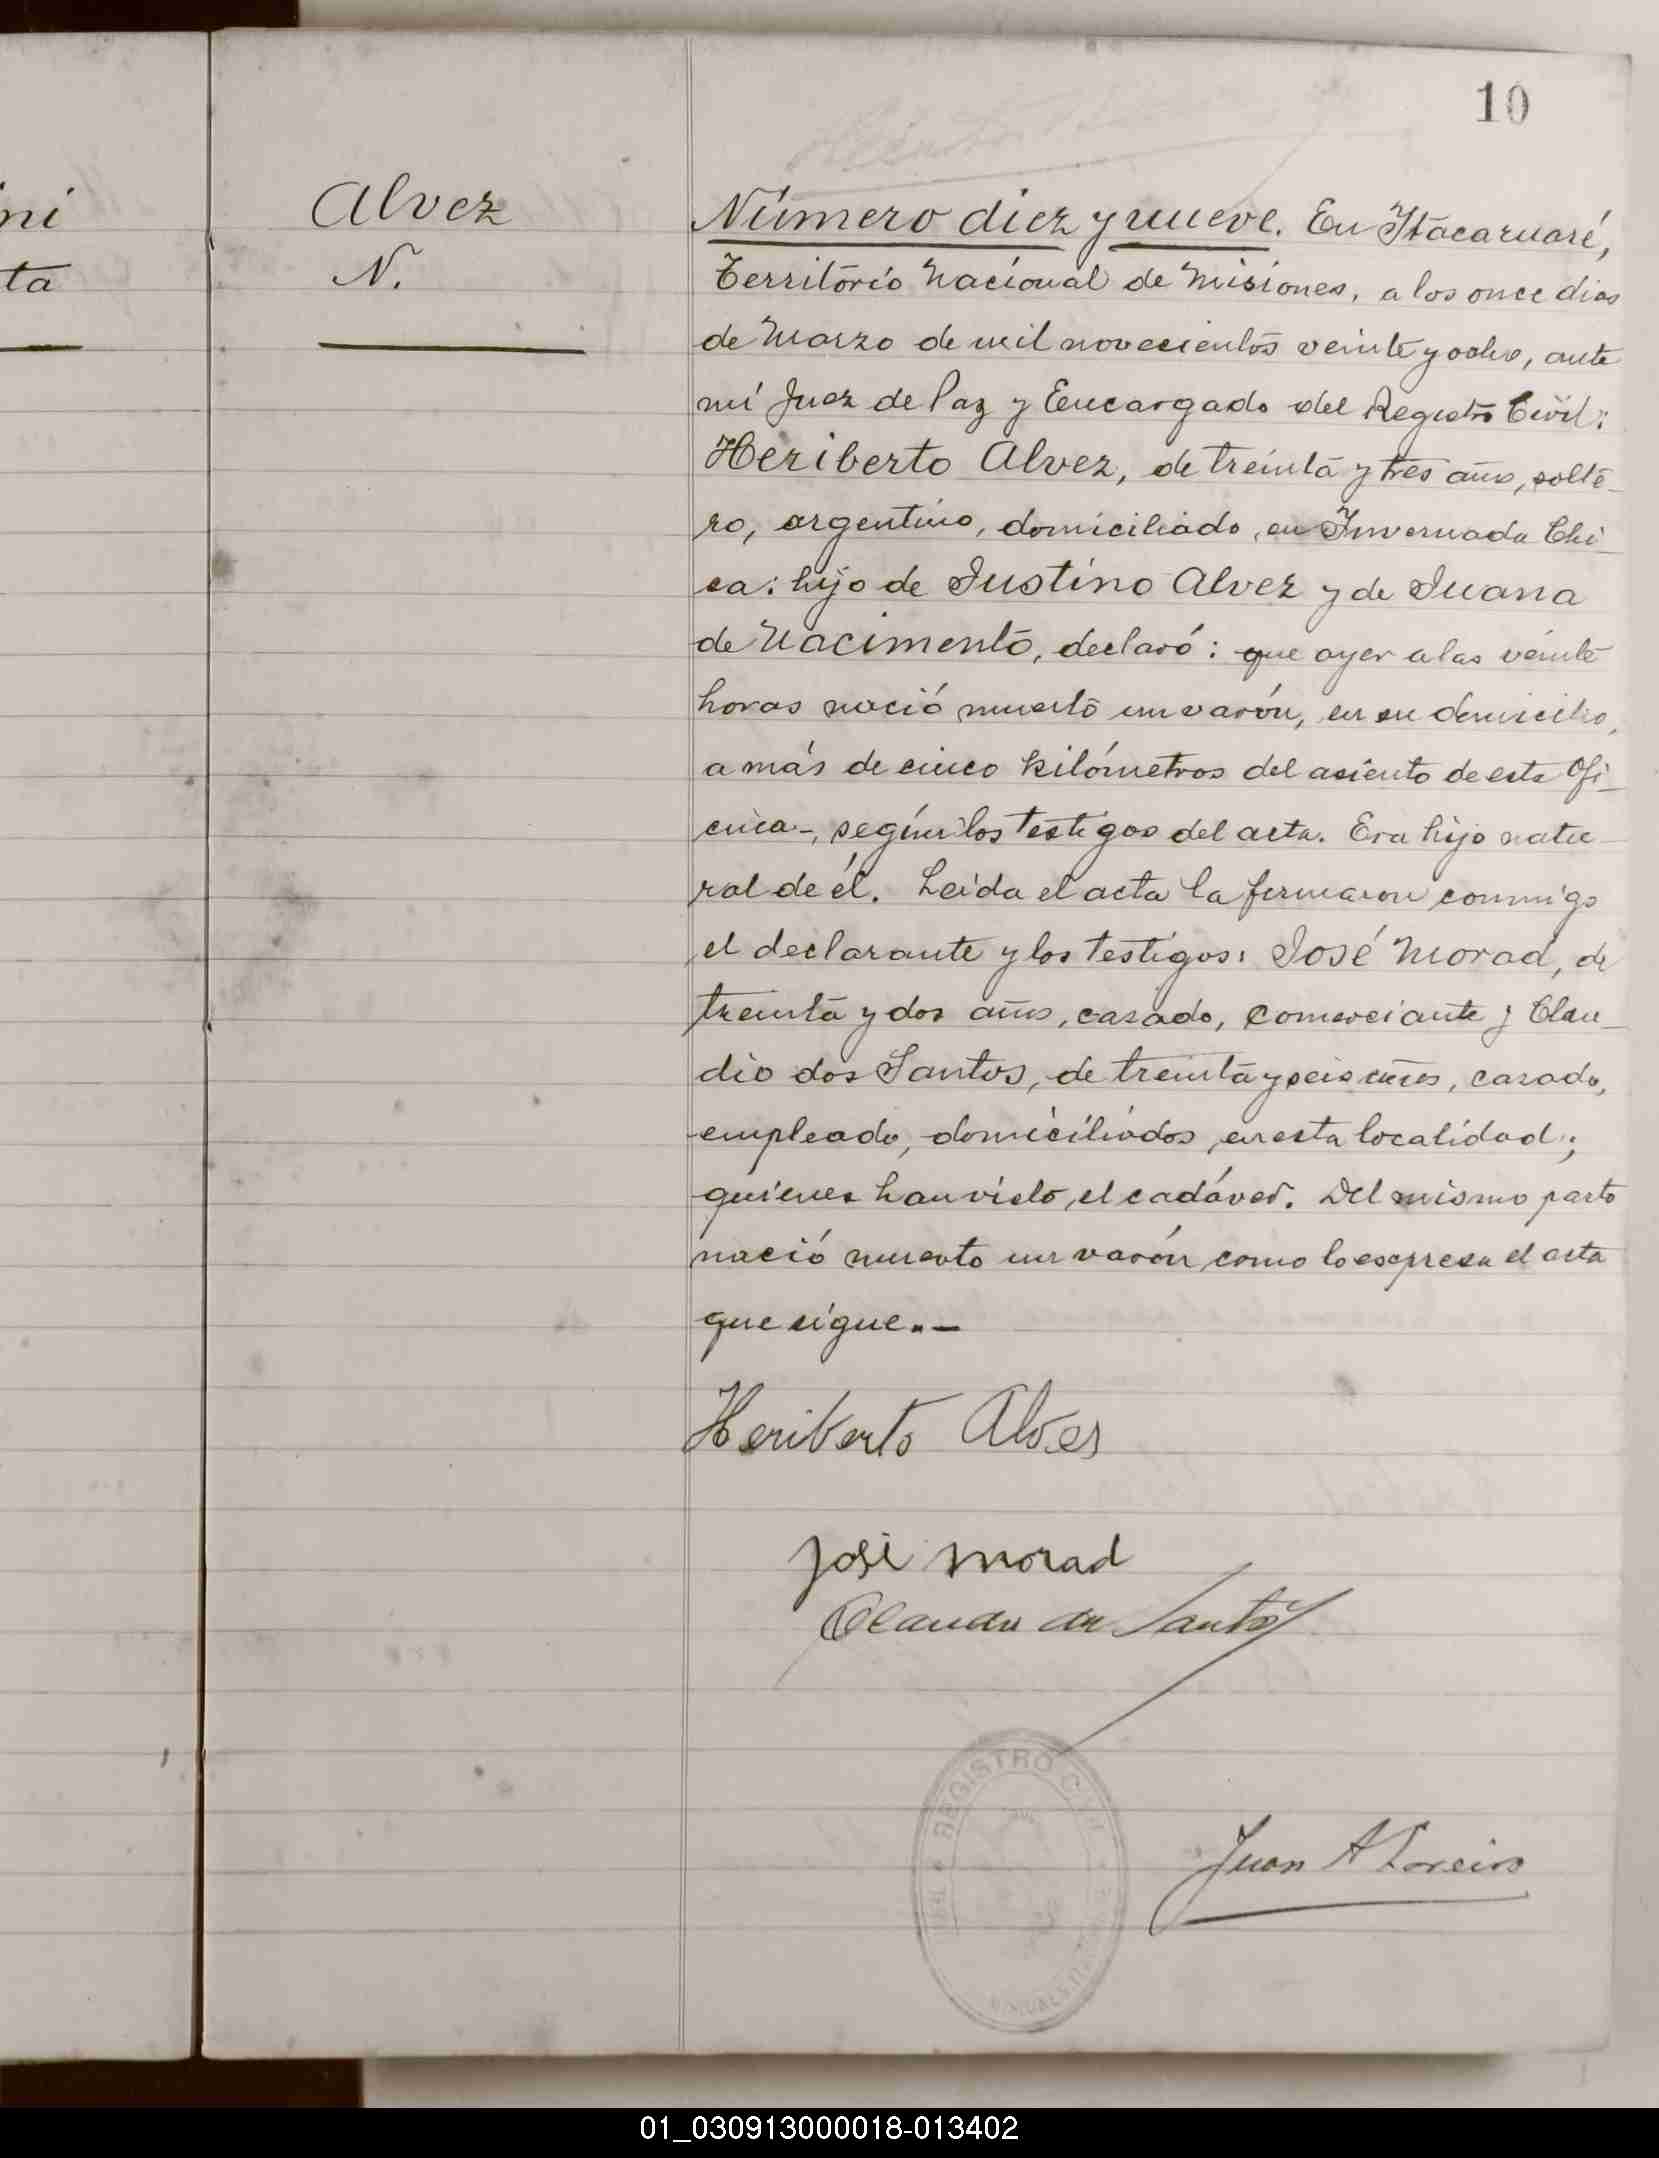 10
ni
ta
Alvez
N.
Número diez y nueve. En Itacaruaré,
Territorio Nacional de Misiones, a los once dias
de Marzo de mil novecientos veinte y ocho, ante
mí Juez de Paz y Encargado del Registro Civil:
Heriberto Alvez, de treinta y tres años, solte-
ro, argentino, domiciliado, en Invernada Chi-
ca: hijo de Justino Alvez y de Juana
de Nacimento, declaró: que ayer a las veinte
horas nació muerto un varón, en su domicilio,
a más de cinco kilómetros del asiento de esta Ofi-
cina-, según los testigos del acta. Era hijo natu-
ral de él. Leida el acta la firmaron conmigo
el declarante y los testigos: José Morad, de
treinta y dos años, casado, comerciante y Clau-
dio dos Santos, de treinta y seis años, casado,
empleado, domiciliados en esta localidad;
quienes han visto el cadáver. Del mismo parto
nació muerto un varón como lo expresa el acta
que sigue.-
Heriberto Alves
José Morad
Claudio dos Santos
REGISTRO CIVIL
Juan A
01_030913000018-013402